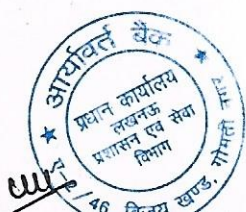 आर्यावर्त बैंक
प्रधान कार्यालय
लखनऊ
प्रशासन एवं सेवा
विभाग
46, विजय खण्ड, गोमती नगर